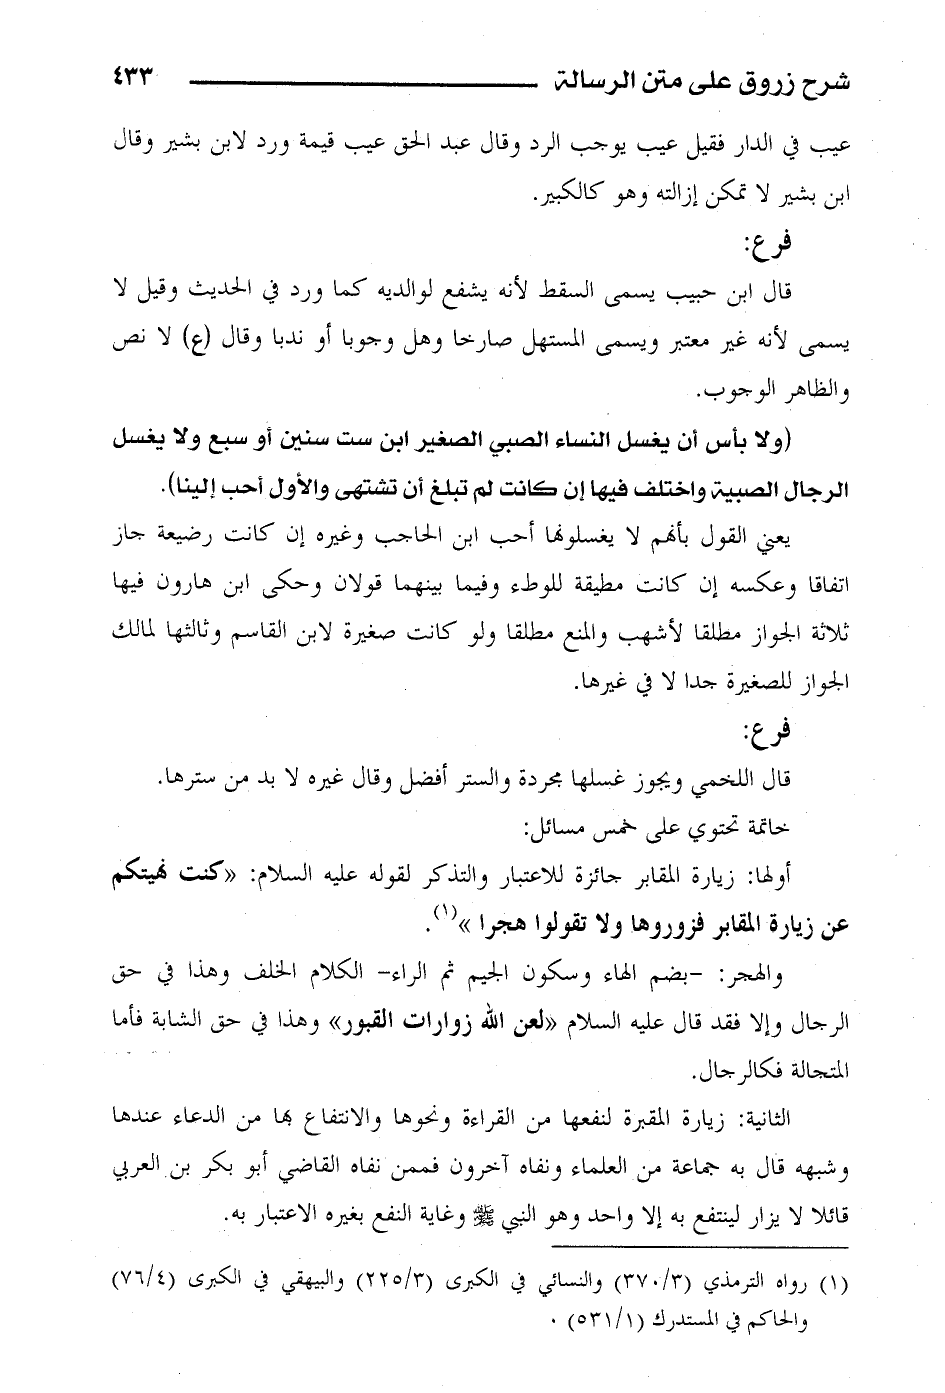 شرح زروق على متن الرسالة ٤٣٣
عيب في الدار فقيل عيب يوجب الرد وقال عبد الحق عيب قيمة ورد لابن بشير وقال
ابن بشير لا تمكن إزالته وهو كالكبير.
فرع:
قال ابن حبيب يسمى السقط لأنه يشفع لوالديه كما ورد في الحديث وقيل لا
يسمى لأنه غير معتبر ويسمى المستهل صارخا وهل وجوبا أو ندبا وقال (ع) لا نص
والظاهر الوجوب.
(ولا بأس أن يغسل النساء الصبي الصغير ابن ست سنين أو سبع ولا يغسل
الرجال الصبية واختلف فيها إن كانت لم تبلغ أن تشتهى والأول أحب إلينا).
يعني القول بأنهم لا يغسلونها أحب ابن الحاجب وغيره إن كانت رضيعة جاز
اتفاقا وعكسه إن كانت مطيقة للوطء وفيما بينهما قولان وحكى ابن هارون فيها
ثلاثة الجواز مطلقا لأشهب والمنع مطلقا ولو كانت صغيرة لابن القاسم وثالثها لمالك
الجواز للصغيرة جدا لا في غيرها.
فرع:
قال اللخمي ويجوز غسلها مجردة والستر أفضل وقال غيره لا بد من سترها.
خاتمة تحتوي على خمس مسائل:
أولها: زيارة المقابر جائزة للاعتبار والتذكر لقوله عليه السلام: «كنت نهيتكم
عن زيارة المقابر فزوروها ولا تقولوا هجرا »(١).
والهجر: -بضم الهاء وسكون الجيم ثم الراء- الكلام الخلف وهذا في حق
الرجال وإلا فقد قال عليه السلام «لعن الله زوارات القبور» وهذا في حق الشابة فأما
المتجالة فكالرجال.
الثانية: زيارة المقبرة لنفعها من القراءة ونحوها والانتفاع بها من الدعاء عندها
وشبهه قال به جماعة من العلماء ونفاه آخرون فممن نفاه القاضي أبو بكر بن العربي
قائلا لا يزار لينتفع به إلا واحد وهو النبي ﷺ وغاية النفع بغيره الاعتبار به.
(١) رواه الترمذي (٣/٣٧٠) والنسائي في الكبرى (٣/٢٢٥) والبيهقي في الكبرى (٤/٧٦)
والحاكم في المستدرك (١/٥٣١) .